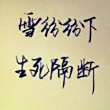 雪纷纷下
生死隔断